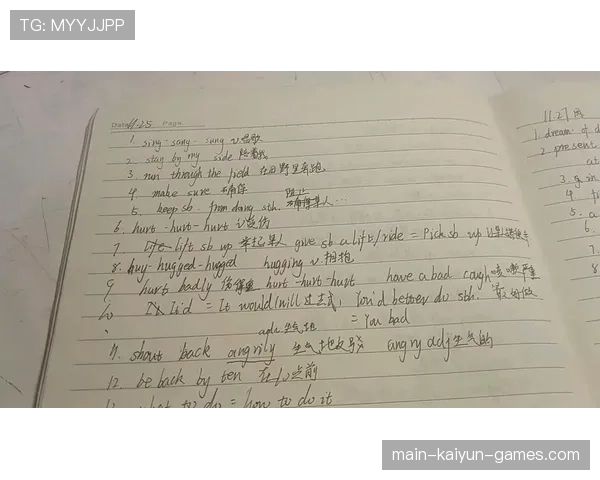 TG: MYYJJPP
Date 11.25 Page
1. sing - sang - sung v.唱歌
2. stay by my side 陪着我
3. run through the field 在田野里奔跑
4. make sure 确保
阻止
5. keep sb. from doing sth. 某人...
6. hurt - hurt - hurt v.受伤
7 lift sb up 举起某人 give sb a lift/ride = Pick sb up
8. hug - hugged - hugged hugging v 拥抱
9 hurt badly 伤得重 hurt - hurt - hurt have a bad cough 咳嗽严重
10 It'd = It would/will 过去式, You'd better do sth. 最好做
adv.生气地 = You bad
11. shout back angrily 生气地反驳 angry adj 生气的
12. be back by ten 在10点前
what to do = how to do it
11.27
1. dream of d
2 present
3. g in
4
5. a
6.
7.
8.
main-kaiyun-games.com